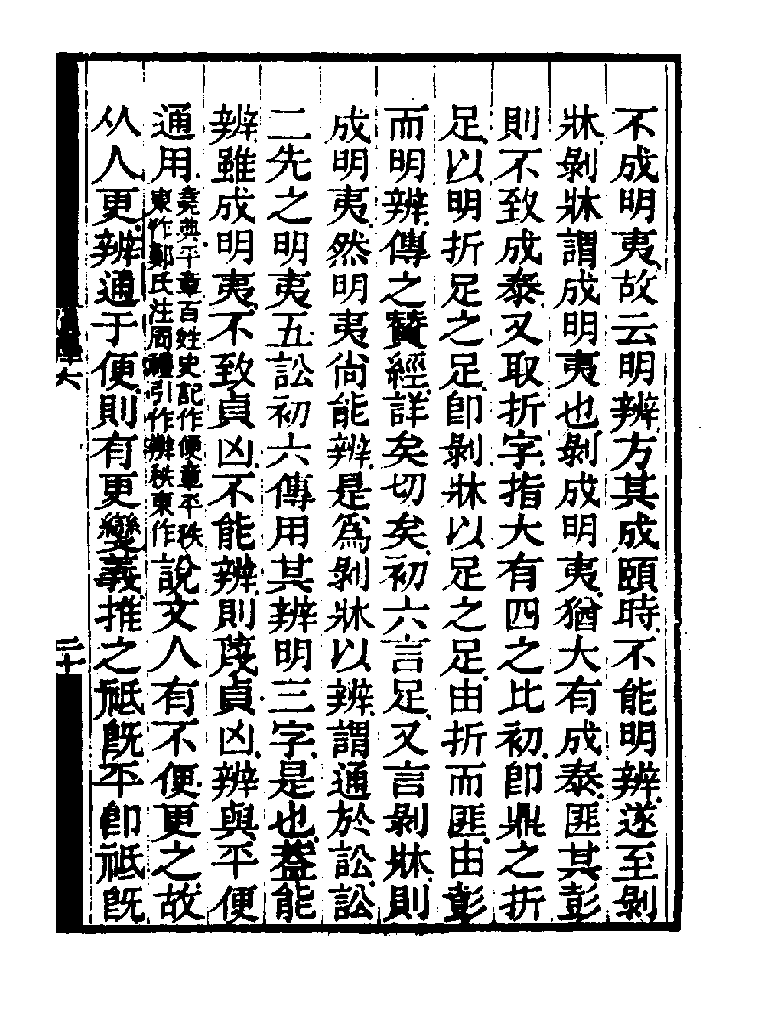 不成明夷故云明辨方其成頤時不能明辨遂至剝
牀剝牀謂成明夷也剝成明夷猶大有成泰匪其彭
則不致成泰又取折字指大有四之比初卽鼎之折
足以明折足之足卽剝牀以足之足由折而匪由彭
而明辨傳之贊經詳矣切矣初六言足又言剝牀則
成明夷然明夷尚能辨是爲剝牀以辨謂通於訟訟
二先之明夷五訟初六傳用其辨明三字是也葢能
辨雖成明夷不致貞凶不能辨則蔑貞凶辨與平便
通用堯典平章百姓史記作便章平秩
東作鄭氏注周禮引作辨秩東作說文人有不便更之故
从人更辨通于便則有更變義推之祗旣平卽祗旣
二十